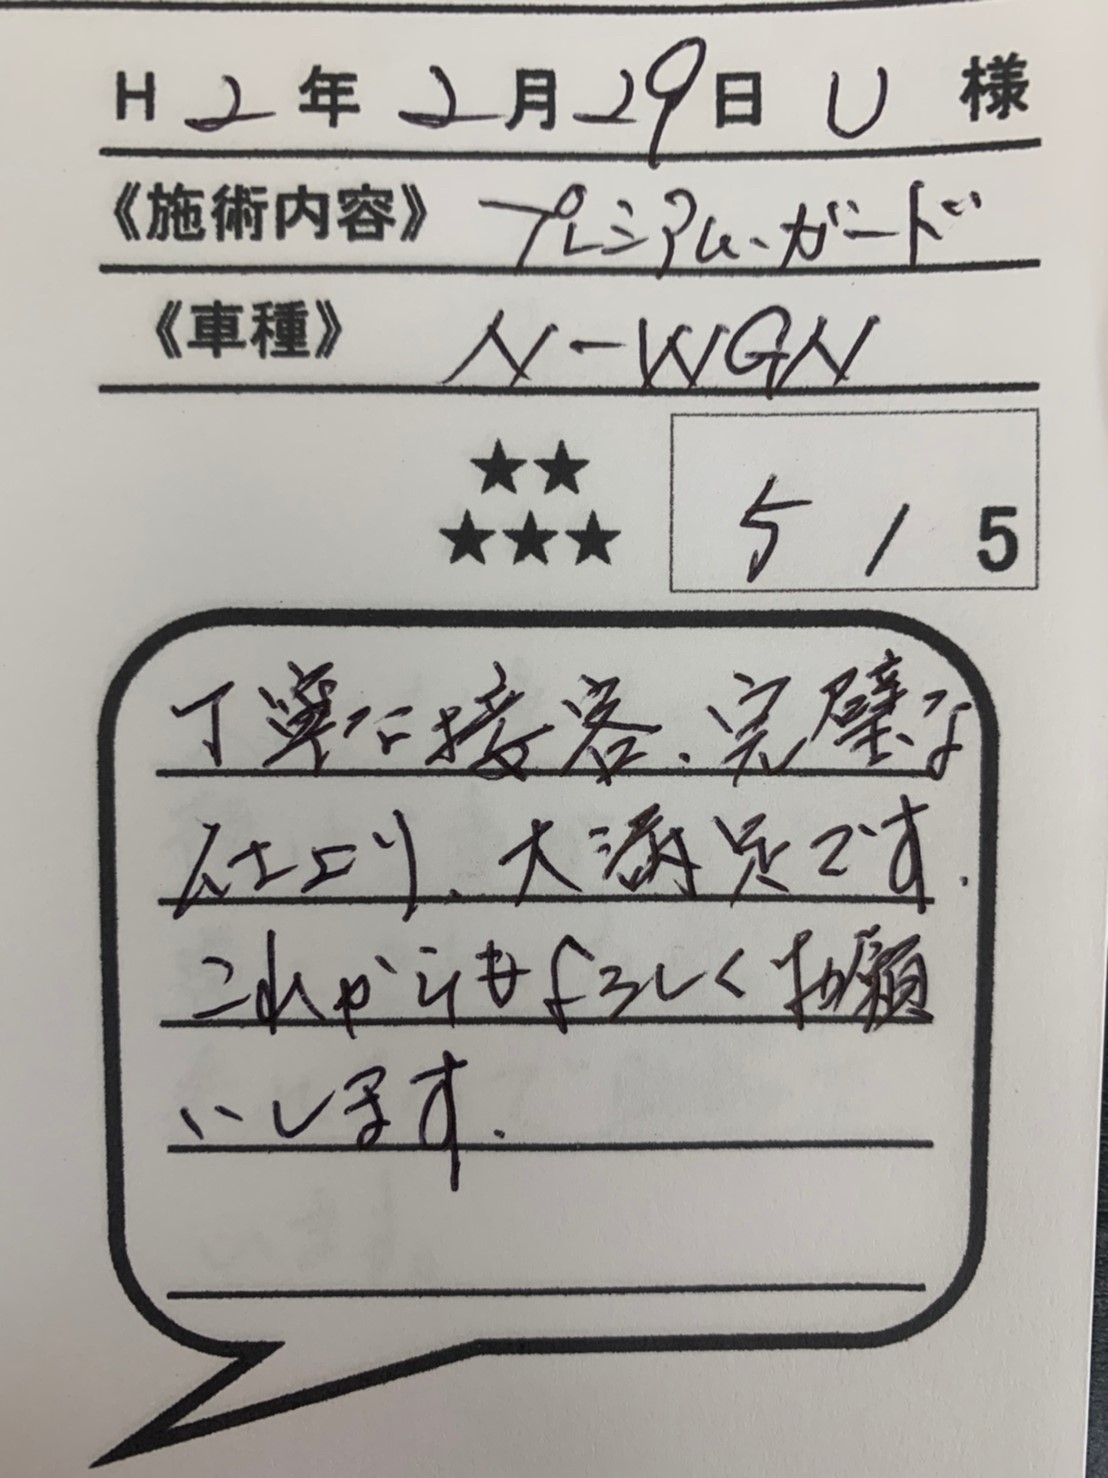 H 2年 2月29日 U 様
《施術内容》 プレミアム・ガード
《車種》 N-WGN
★★
★★★ 5 / 5
丁寧な接客、完璧な
仕上り、大満足です.
これからもよろしくお願
いします.